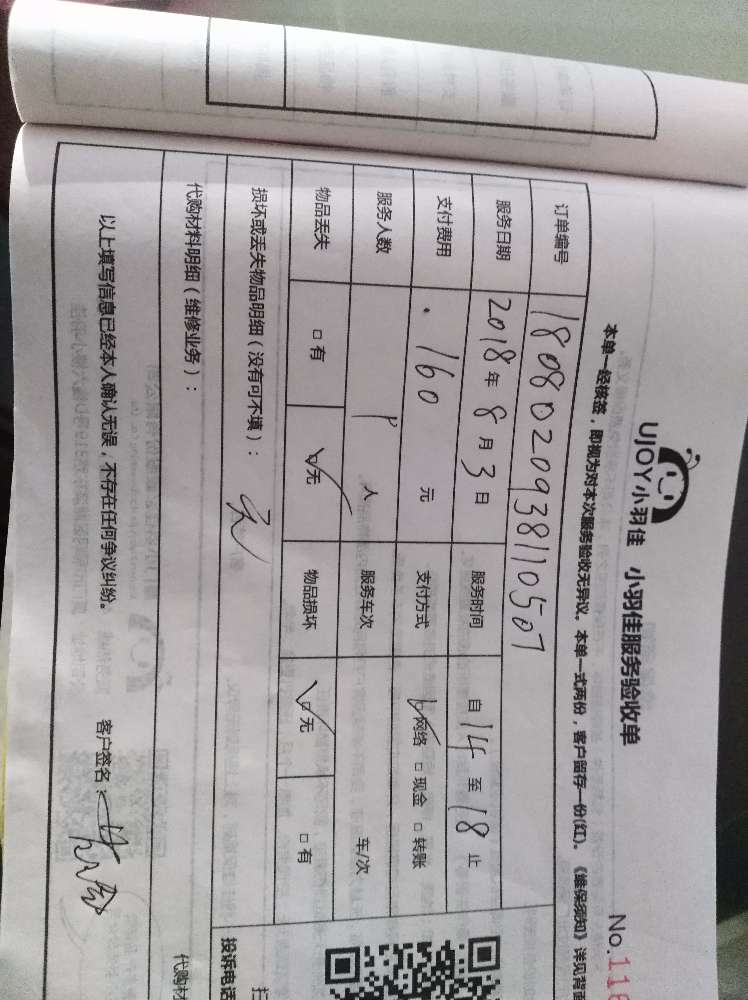 UJOY小羽佳 小羽佳服务验收单
No.116
本单一经核签，即视为对本次服务验收无异议。本单一式两份，客户留存一份(红)。《维保须知》详见背面
订单编号 1808020938110507
服务日期 2018年8月3日 服务时间 自14至18止
支付费用 160元 支付方式 网络 □现金 □转账
服务人数 1人 服务车次 车/次
物品丢失 □有 □无 物品损坏 □无 □有
损坏或丢失物品明细（没有可不填）： 无
投诉电话
代购材料明细（维修业务）：
代购材
以上填写信息已经本人确认无误，不存在任何争议纠纷。 客户签名：